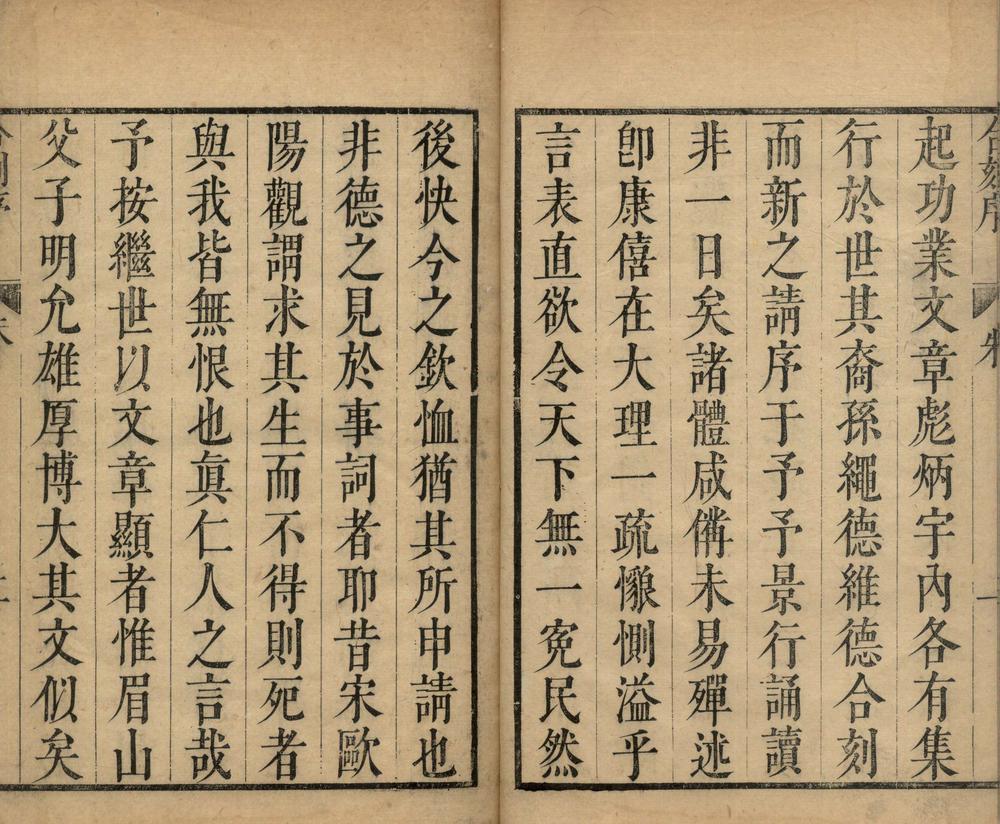 起功業文章彪炳宇內各有集
行於世其裔孫繩德維德合刻
而新之請序于予予景行誦讀
非一日矣諸體咸備未易殫述
卽康僖在大理一疏惻溢乎
言表直欲令天下無一寃民然
後快今之欽恤猶其所申請也
非德之見於事詞者耶昔宋歐
陽觀謂求其生而不得則死者
與我皆無恨也眞仁人之言哉
予按繼世以文章顯者惟眉山
父子明允雄厚博大其文似矣